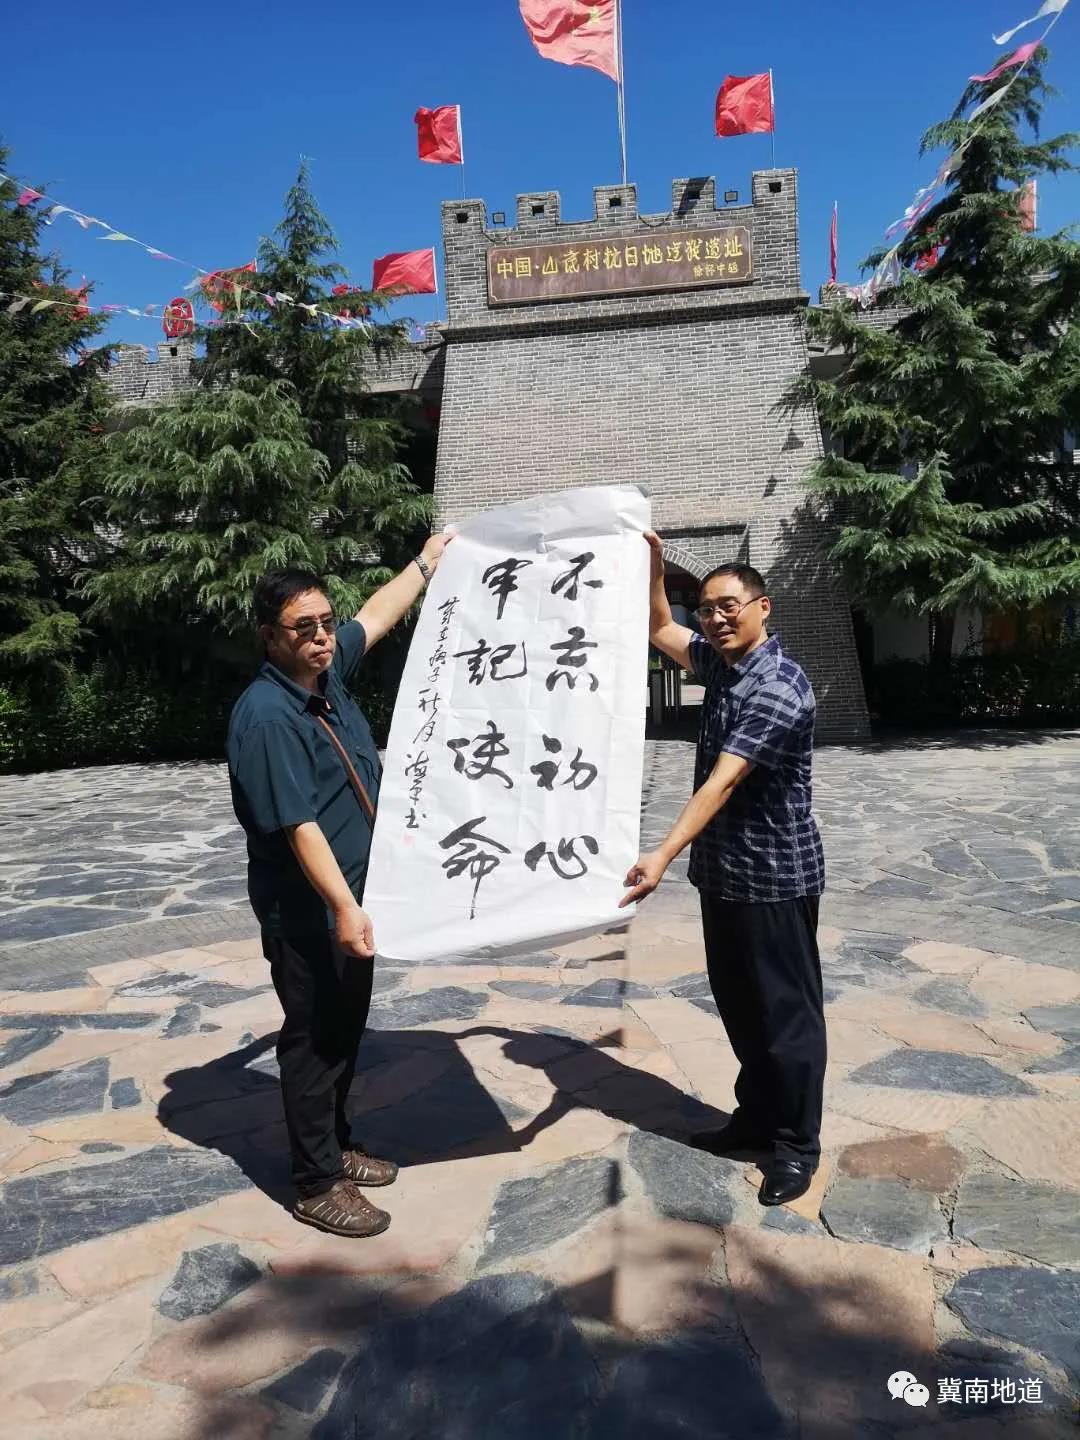 中国·山底村抗日地道战遗址
徐怀中题
不忘初心
牢记使命
庚子秋月
书
冀南地道